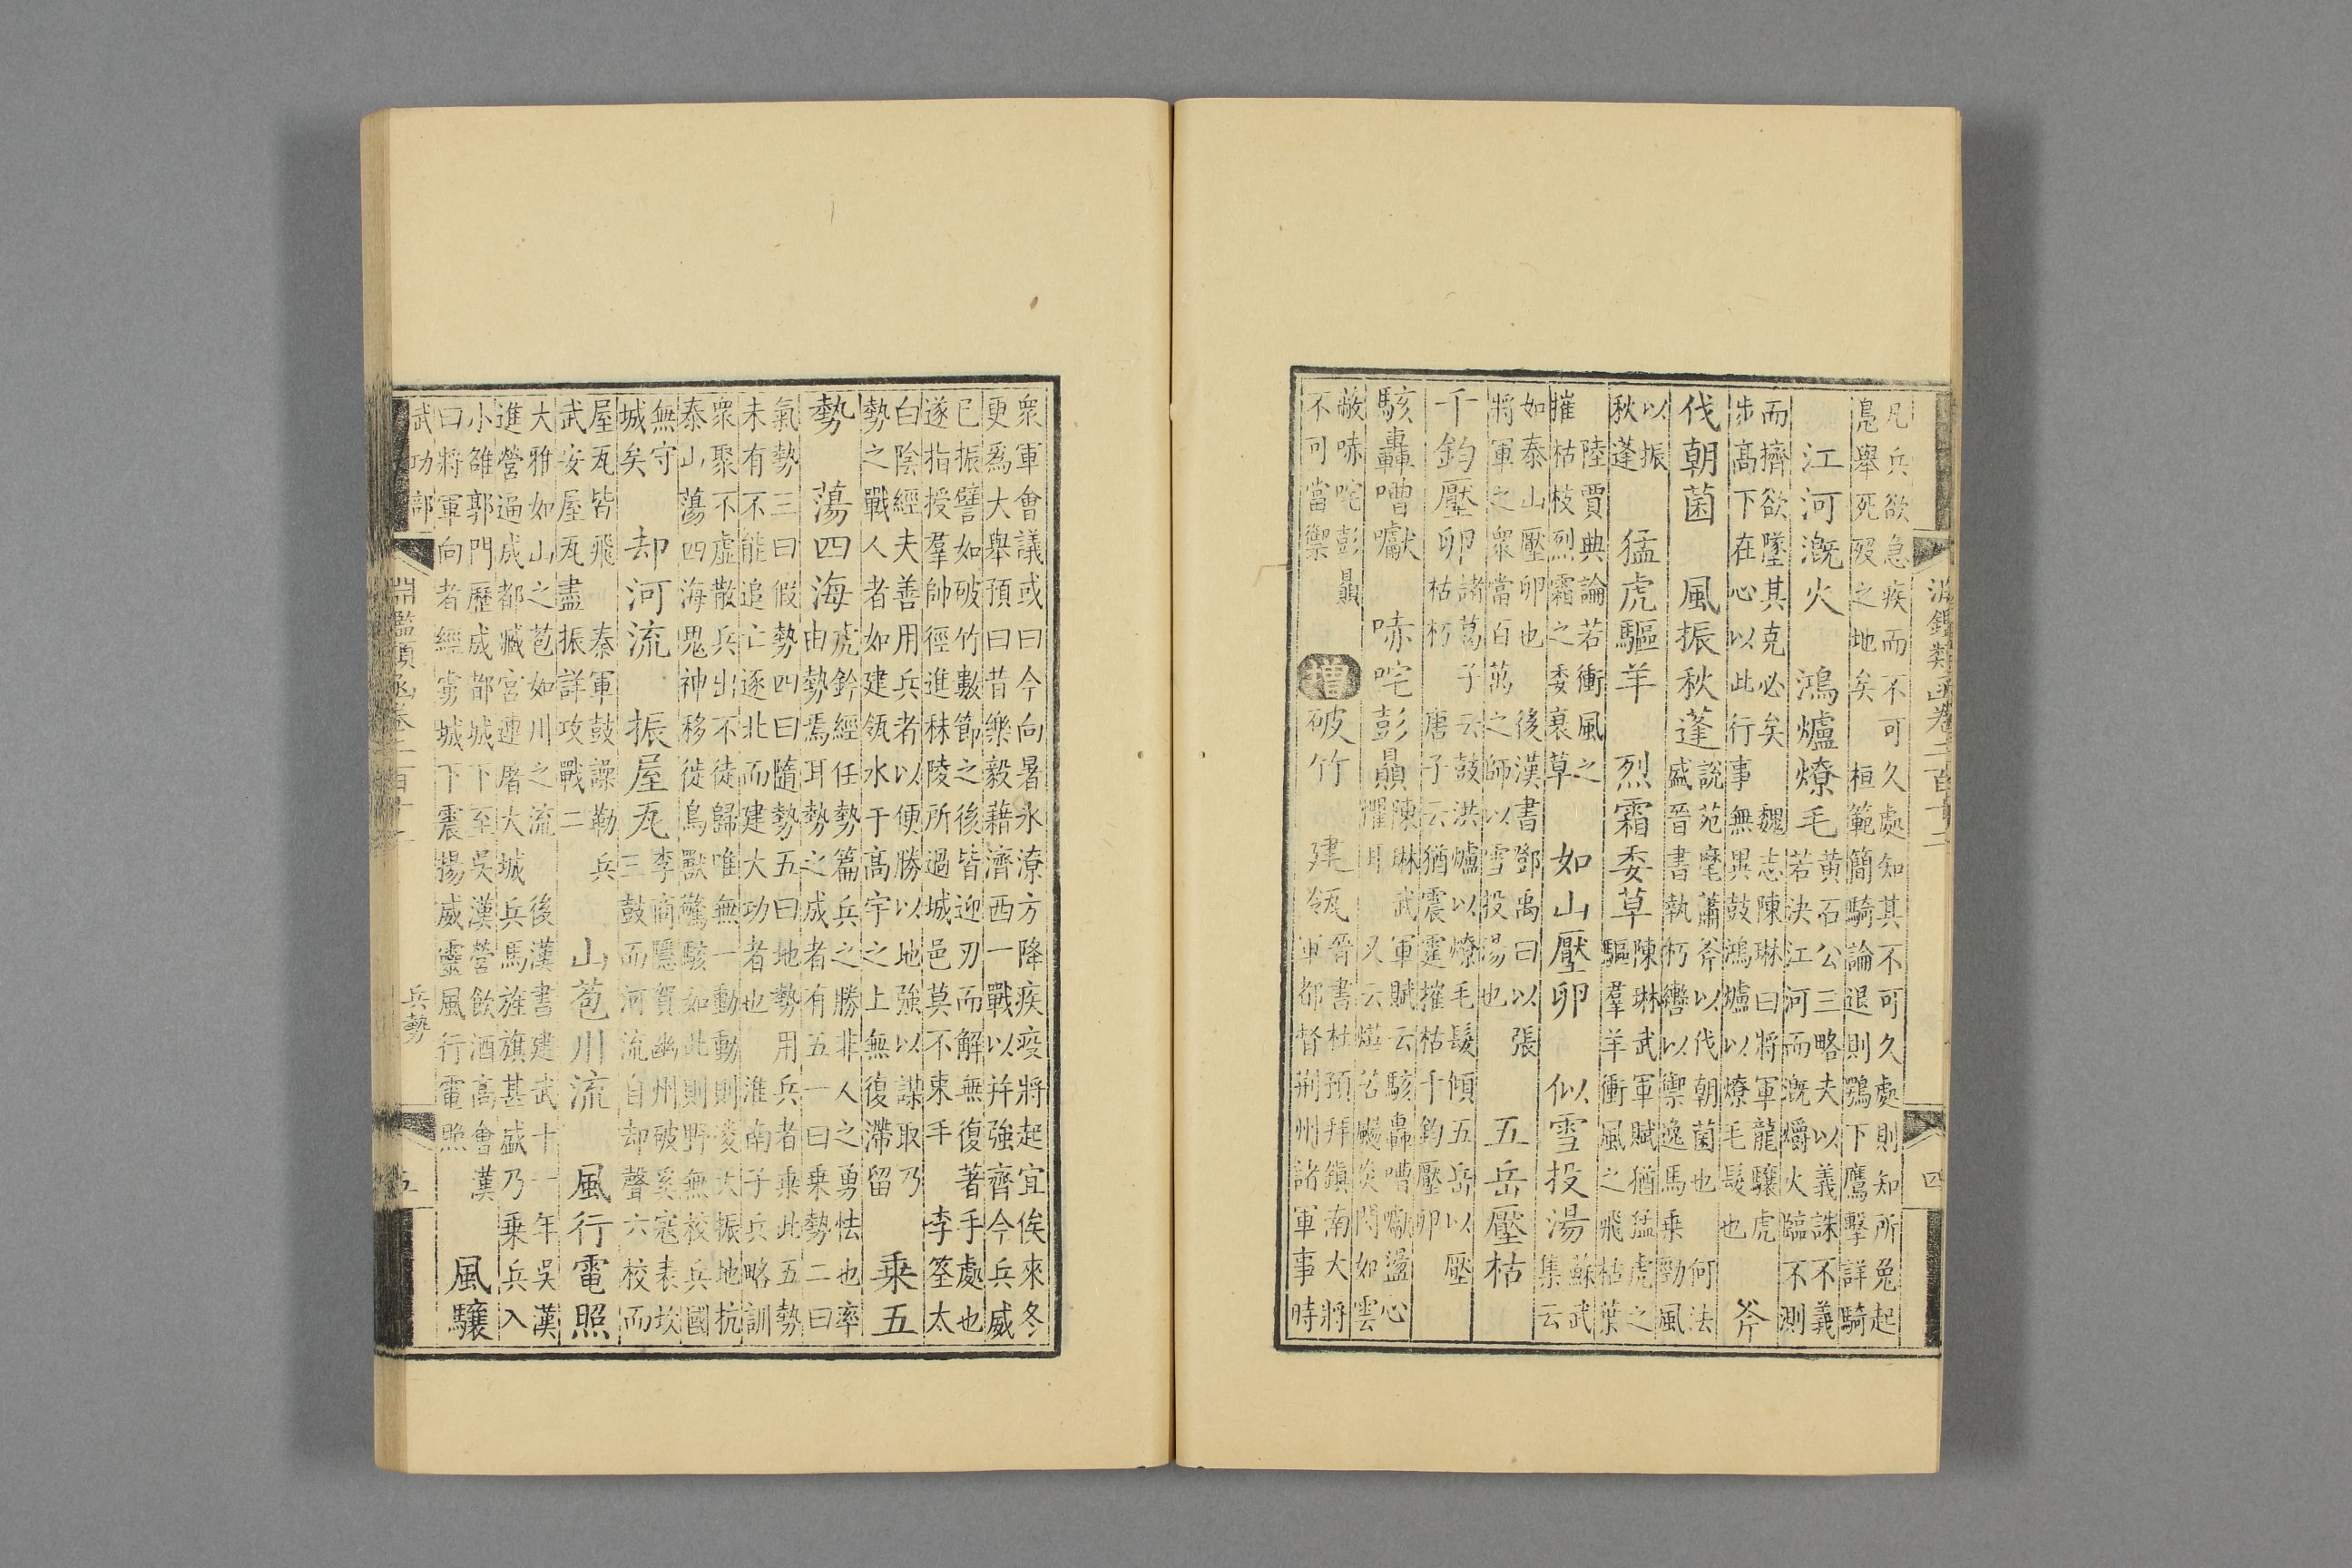 淵鑑類函卷二百十二
四
凡兵欲急疾而不可久處知其不可久處則知所兔起
鳧舉死殁之地矣　桓範簡騎論退則鶚下鷹擊詳騎
江河漑火　鴻爐燎毛
黄石公三略夫以義誅不義
若決江河而漑爝火臨不測
而擠欲墜其克必矣　魏志陳琳曰將軍龍驤虎
步高下在心以此行事無異鼓鴻爐以燎毛髮也
斧
伐朝菌　風振秋蓬
說苑麾蕭斧以伐朝菌也　何法
盛晉書執朽轡以禦逸馬乗勁風
以振
秋蓬
猛虎驅羊　烈霜委草
陳琳武軍賦猶猛虎之
驅羣羊衝風之飛枯葉
陸賈典論若衝風之
摧枯枝烈霜之委衰草
如山壓卵　似雪投湯
蘇武
集云
如泰山壓卵也　後漢書鄧禹曰以張
將軍之衆當百萬之師以雪投湯也
五岳壓枯
千鈞壓卵
諸葛子云鼓洪爐以燎毛髮傾五岳以壓
枯朽　唐子云猶震霆摧枯千鈞壓卵
駭轟嘈囐　哧咤彭贔
陳琳武軍賦云駭轟嘈囐盪心
懼耳　又云熯若飈炎閃如雲
敝哧咤彭贔
不可當禦
增　破竹　建瓴
晉書杜預拜鎮南大將
軍都督荆州諸軍事時
衆軍會議或曰今向暑水潦方降疾疫將起宜俟來冬
更爲大舉預曰昔樂毅藉濟西一戰以并強齊今兵威
已振譬如破竹數節之後皆迎刃而解無復著手處也
遂指授羣帥徑進秣陵所過城邑莫不束手　李筌太
白陰經夫善用兵者以便勝以地強以謀取乃
勢之戰人者如建瓴水于高宇之上無復滯留
乗五
勢　蕩四海
虎鈐經任勢篇兵之勝非人之勇怯也率
由勢焉耳勢之成者有五一曰乗勢二曰
氣勢三曰假勢四曰隨勢五曰地勢用兵者乗此五勢
未有不能追亡逐北而建大功者也　淮南子兵略訓
衆聚不虚散兵出不徒歸唯無一動動則凌天振地抗
泰山蕩四海鬼神移徙鳥獸驚駭如此則野無校兵國
無守
城矣
却河流　振屋瓦
李商隱賀幽州破奚寇表坎
三鼓而河流自却聲六校而
屋瓦皆飛　秦軍鼓譟勒兵
武安屋瓦盡振詳攻戰二
山苞川流　風行電照
大雅如山之苞如川之流　後漢書建武十一年吳漢
進營逼成都臧宮連屠大城兵馬旌旗甚盛乃乗兵入
小雒郭門歷成都城下至吳漢營飲酒高會漢
曰將軍向者經虜城下震揚威靈風行電照
風驤
武功部
淵鑑類函卷二百十二
兵勢
五